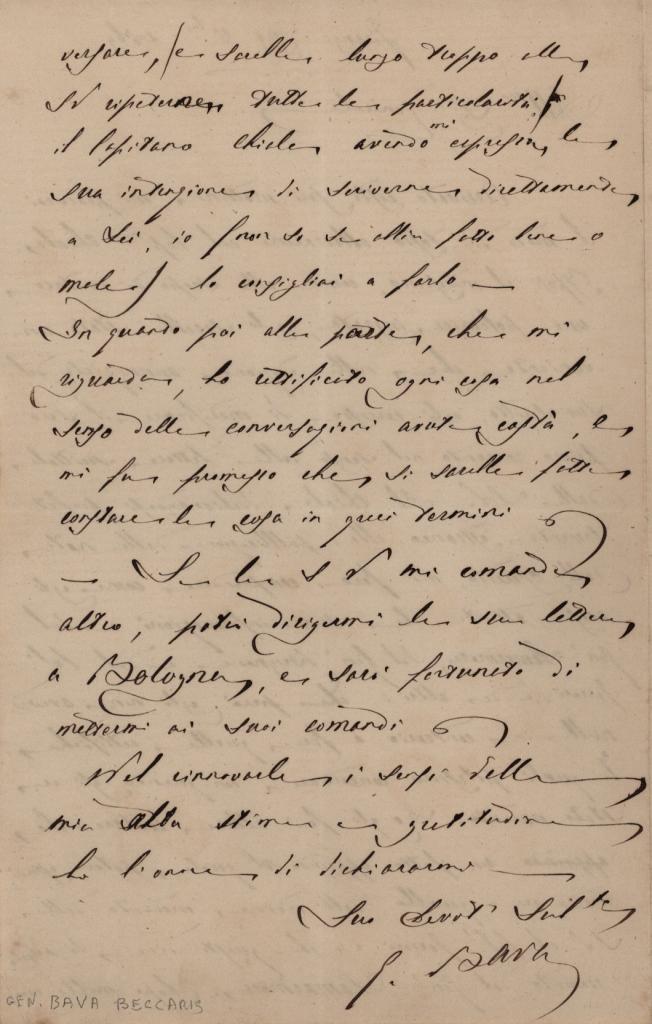 versare, e sarebbe lungo troppo alla
S V ripeterne tutte le particolarità;
il Capitano Chiala avendomi espressa la
sua intenzione di scriverne direttamente
a Lei, io (non so se abbia fatto bene o
male) lo consigliai a farlo —
In quando poi alla parte, che mi
riguarda, ho rettificato ogni cosa nel
senso delle conversazioni avute costà, e
mi fu promesso che si sarebbe fatta
constare la cosa in quei termini
— Se la S V mi comanda
altro, potrà dirigermi la sua lettera
a Bologna, e sarò fortunato di
mettermi ai suoi comandi
Nel rinnovarle i sensi della
mia alta stima e gratitudine
ho l'onore di dichiararmi
Suo Devotº
G. Bava
GEN. BAVA BECCARIS